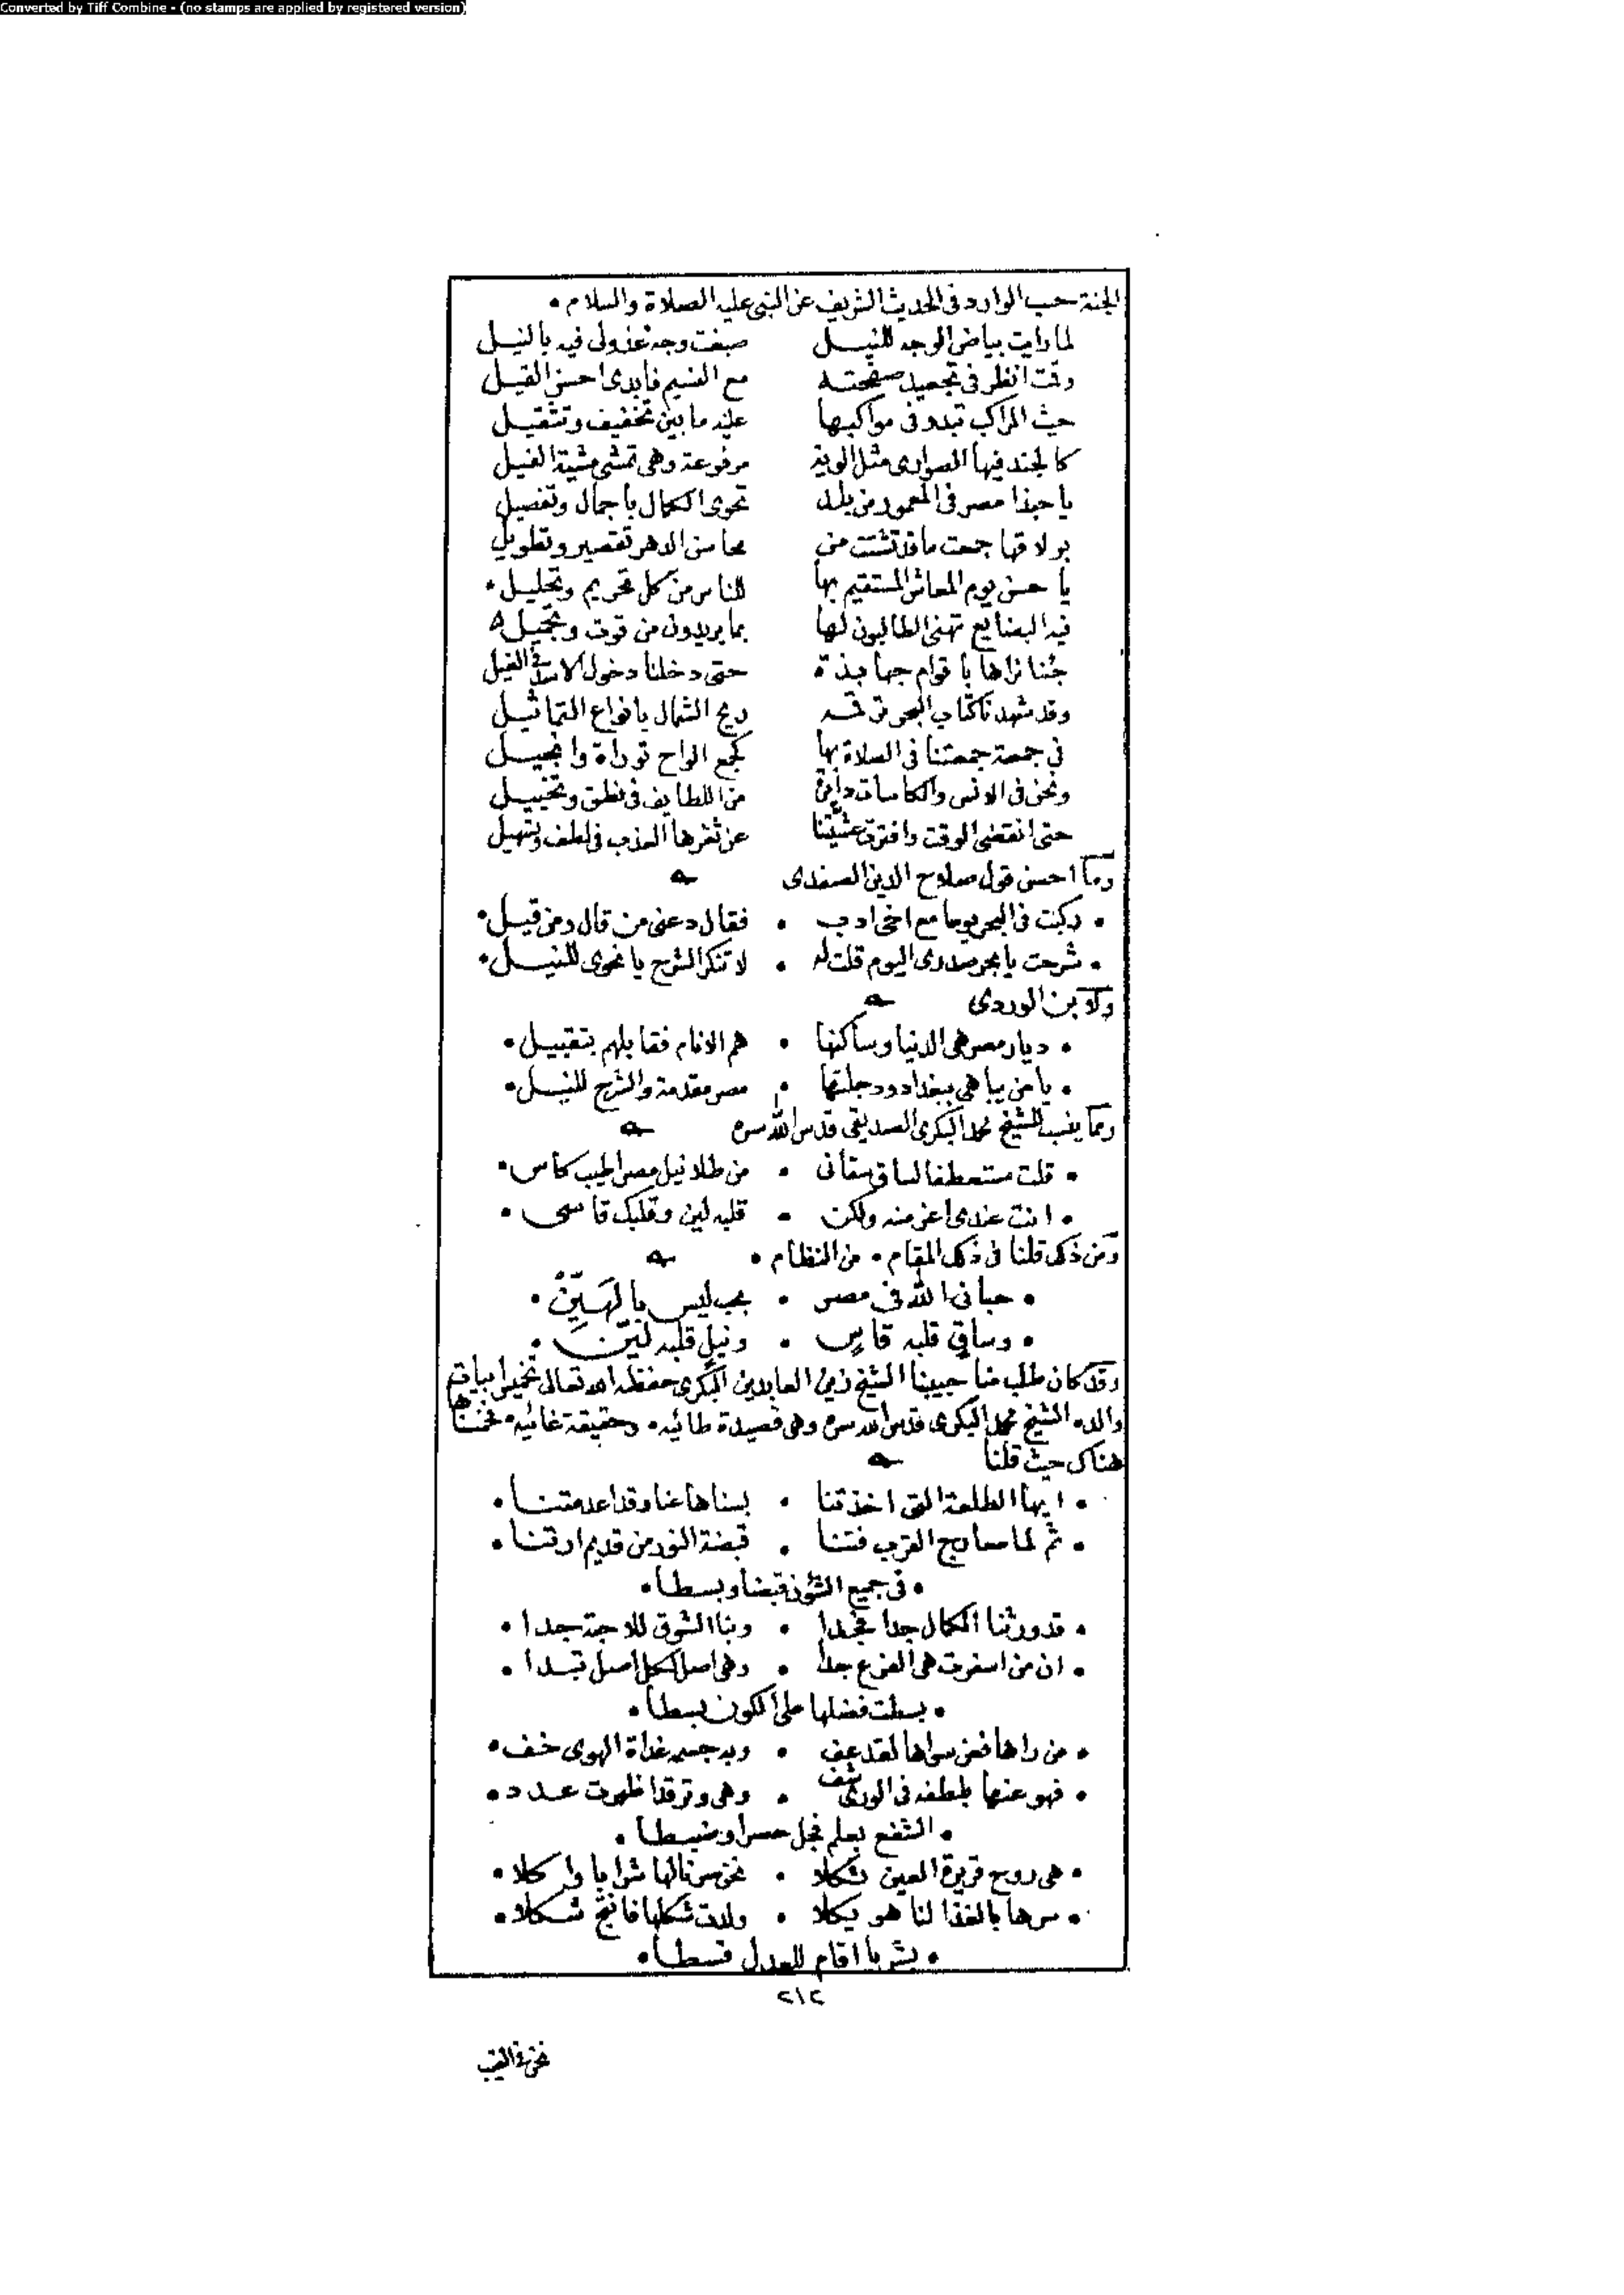 Converted by Tiff Combine - (no stamps are applied by registered version)
الجنة حسب الوارد فى الحديث الشريف عن النبى عليه الصلاة والسلام •
لما رايت بياض الوجه للنيــل صبغت وجه عذولى فيه بالنيــل
وقمت انظر فى تجعيد صفحته مع النسيم فابدى احسن القيــل
حيث المراكب تبدو فى مواكبها عليه ما بين تخفيف وتثقيــل
كالجند فيها الصوارى مثل الوية مرفوعة وهى تمشى مشية الفيل
يا حبذا مصر فى المعمور من بلد تحوى الكمال باجمال وتفصيل
بولاقها جمعت ما قد تشتت من محاسن الدهر تقصير وتطويل
يا حسن يوم المعاش المستقيم بها للناس من كل تحريم وتحليل •
فيه البضايع تهنى الطالبون لها بما يريدون من قوت وتجميل
جئنا نراها باقوام جهابذة حتى دخلنا دخول الاسد فى الغيل
وقد شهدنا كتاب البحر ترقمه ريح الشمال بانواع التماثيــل
فى جمعة جمعتنا فى الصلاة بها كجمع الواح توراة وانجيــل
ونحن فى الانس والكاسات دايرة من اللطايف فى نطق وتخييــل
حتى انقضى الوقت وافترت عشيتنا عن ثغرها العذب فى لطف وتسهيل
وما احسن قول صلاح الدين الصفدى
• ركبت فى البحر يوما مع اخى ادب • فقال دعنى من قال ومن قيــل •
• شرحت يا بحر صدرى اليوم قلت له • لا تنكر الشرح يا نحوى للنيــل •
ولابن الوردى
• ديار مصر هى الدنيا وساكنها • هم الانام فقابلهم بتقبيــل •
• يا من يباهى ببغداد ودجلتها • مصر مقدمة والشرح للنيــل •
ومما ينسب للشيخ محمد البكرى الصديقى قدس الله سره
• قلت مستعطفا لساق سقانى • من طلا نيل مصر الحب كاس •
• انت عندى اعز منه ولكن • قلبه لين وقلبك قاسى •
ومن ذلك قلنا فى ذلك المقام • من النظام •
• حبانى الله فى مصر • بحب ليس بالهَيِّنْ •
• وساقى قلبه قاسٍ • ونيل قلبه ليّن •
وقد كان طلب منا حبيبنا الشيخ زين العابدين البكرى حفظه الله تعالى تخميس ابيات
والده الشيخ محمد البكرى قدس الله سره وهى قصيدة طائيه • وحقيقة غائيه • فخمسناها
هناك حيث قلنا
• ايها الطلعة التى اخذتنا • بسناها عنا وقد اعدمتنــا •
• ثم لما معاريج القرب فتنا • قبضة النور من قديم ارتنــا •
• فى جميع الشؤن قبضا وبسطا •
• قد ورثنا الكمال جدا فجدا • وبنا الشوق للاحبة جدا •
• ان من اسفرت هى الفرع جدا • وهى اصل لكل اصل تبــدا •
• بسطت فضلها على الكون بسطا •
• من راها فعن سواها لقد عف • وبه جسمه غداة الهوى خف •
• فهو عنها بلطفه فى الورى شف • وهى وتر قد اظهرت عــدد •
• الشفع بعلم فجل حصرا وضبطا •
• هى روح قريرة العين شكلا • نحن سرنا لها شرابا واكلا •
• سرها بالغذا لنا هو يكلا • ولدت شكلها فانتج شــكلا •
• بشريا اقام للعدل قسطا •
٢١٢